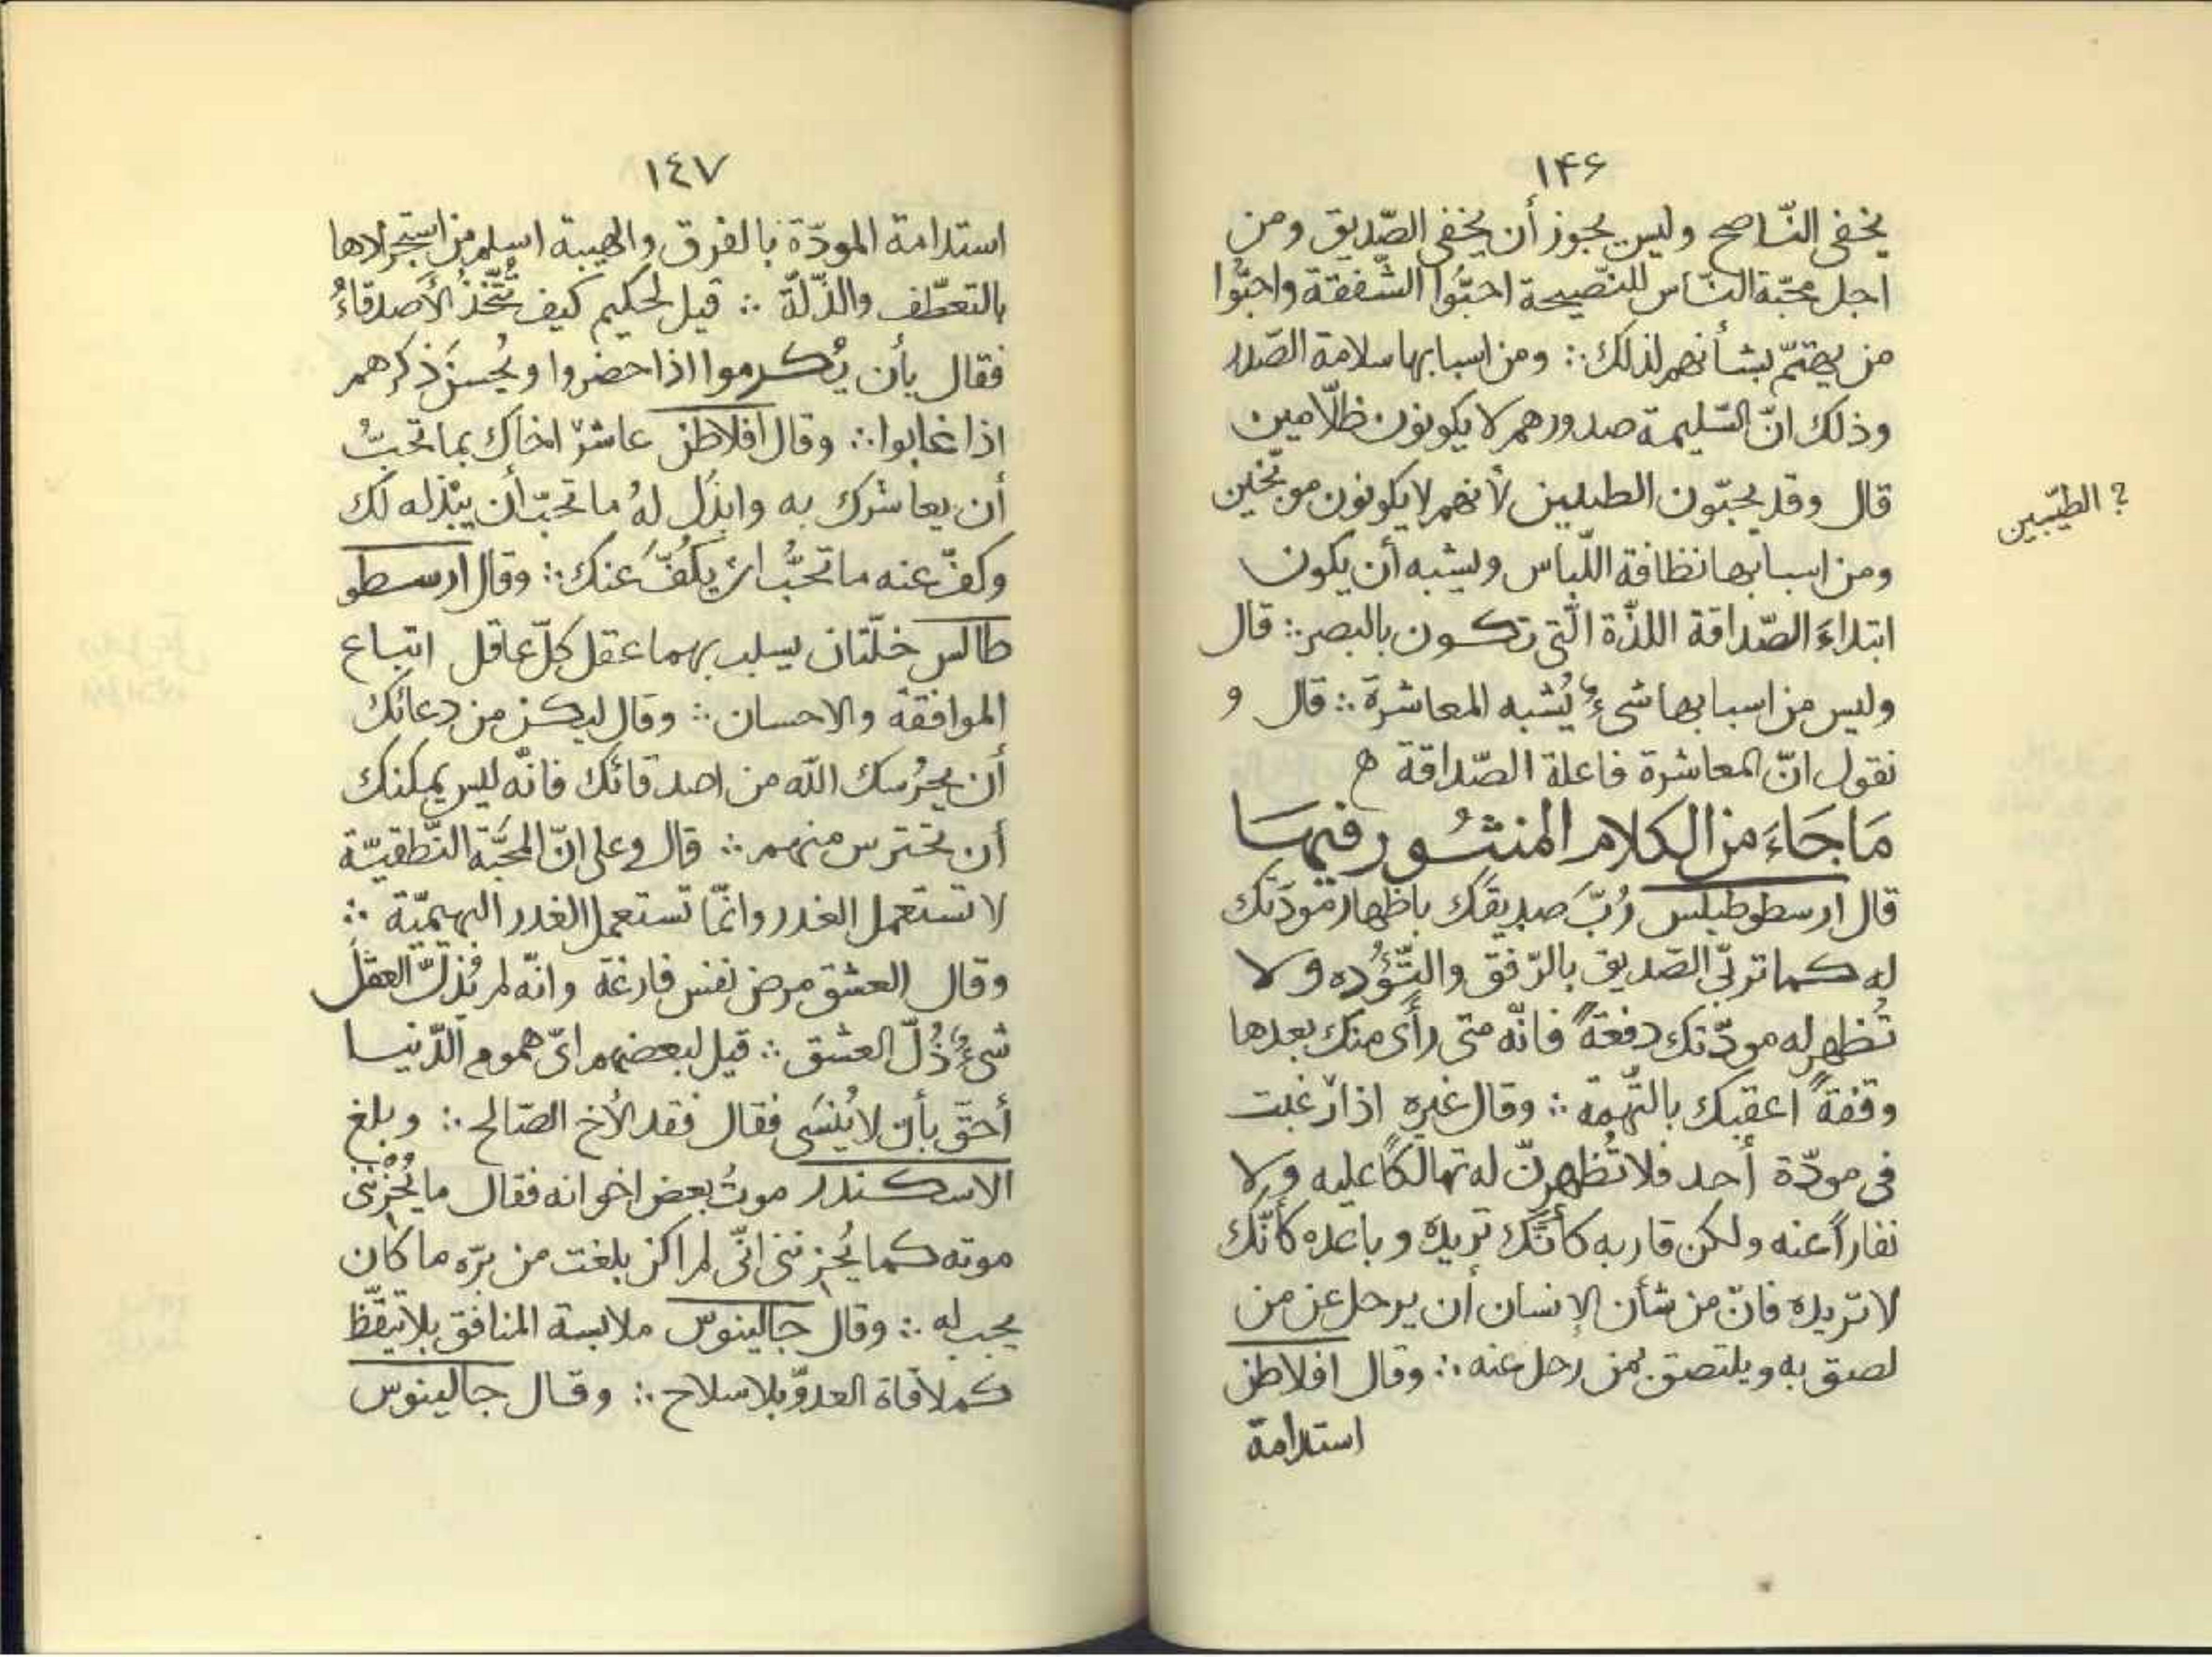 ١۴۶
يخفى النّاصح وليس يجوز أن يخفى الصّديق ومن
اجل محبّة النّاس للنّصيحة احبّوا الشّفقة واحبّوا
من يهتمّ بشأنهم لذلك ∴ ومن اسبابها سلامة الصّدر
وذلك انّ السّليمة صدورهم لا يكونون ظلّامين
قال وقد يحبّون الطيبين لأنهم لا يكونون موبّخين
؟ الطيّبين
ومن اسبابها نظافة اللّباس وليشبه أن يكون
ابتداءَ الصّداقة اللذّة الّتى تكون بالبصر ∴ قال
وليس من اسبابها شىءٌ يُشبه المعاشرةَ ∴ قال و
نقول انّ المعاشرة فاعلة الصّداقة ه
مَا جَاءَ من الكلام المنثُور فيهَا
قال ارسطوطيلس رُبَّ صديقك باظهار مودّتك
له كما تربّى الصّديق بالرّفق والتُّؤَده ولا
تُظهر له مودّتك دفعةً فانّه متى رأى منك بعدها
وقفةً اعقبك بالتّهمة ∴ وقال غيره اذا رغبت
فى مودّة أحد فلا تُظهرنّ له تهالكًا عليه ولا
نفاراً عنه ولكن قاربه كأنّك تريده وباعده كأنّك
لا تريده فانّ من شأن الإنسان أن يرحل عن من
لصق به ويلتصق بمن رحل عنه ∴ وقال افلاطن
استدامة
١٤٧
استدامة المودّة بالفرق والهيبة اسلم من استجرارها
بالتعطّف والذّلّة ∴ قيل لحكيم كيف تُتّخذُ الأصدقاءُ
فقال بأن يُكرموا اذا حضروا ويُحسنَ ذكرهم
اذا غابوا ∴ وقال افلاطن عاشرْ اخاك بما تحبّ
أن يعاشرك به وابذل لهُ ما تحبّ أن يبذله لك
وكفّ عنه ما تحبُّ ان يكُفَّ عنك ∴ وقال ارسطو
طالس خلّتان يسلب بهما عقل كلّ عاقل اتباع
الموافقة والاحسان ∴ وقال ليكن من دعائك
أن يحرُسك الله من اصدقائك فانّه ليس يمكنك
أن تحترس منهم ∴ قال وعلى انّ المحبّة النّطقيّة
لا تستعمل الغدر وانّما تستعمل الغدر البهيميّة ∴
وقال العشق مرض نفس فارغة وانّه لم يُذلّ العقلَ
شىءٌ ذُلّ العشق ∴ قيل لبعضهم اىّ هموم الدّنيا
أحقّ بأن لا يُنسَى فقال فقد الأخ الصّالح ∴ وبلغ
الاسكندر موتُ بعض اخوانه فقال ما يُحْزنُنى
موته كما يُحزننى انّى لم اكن بلغت من برّه ما كان
يجب له ∴ وقال جالينوس ملابسة المنافق بلا تيقّظ
كملاقاة العدوّ بلا سلاح ∴ وقال جالينوس